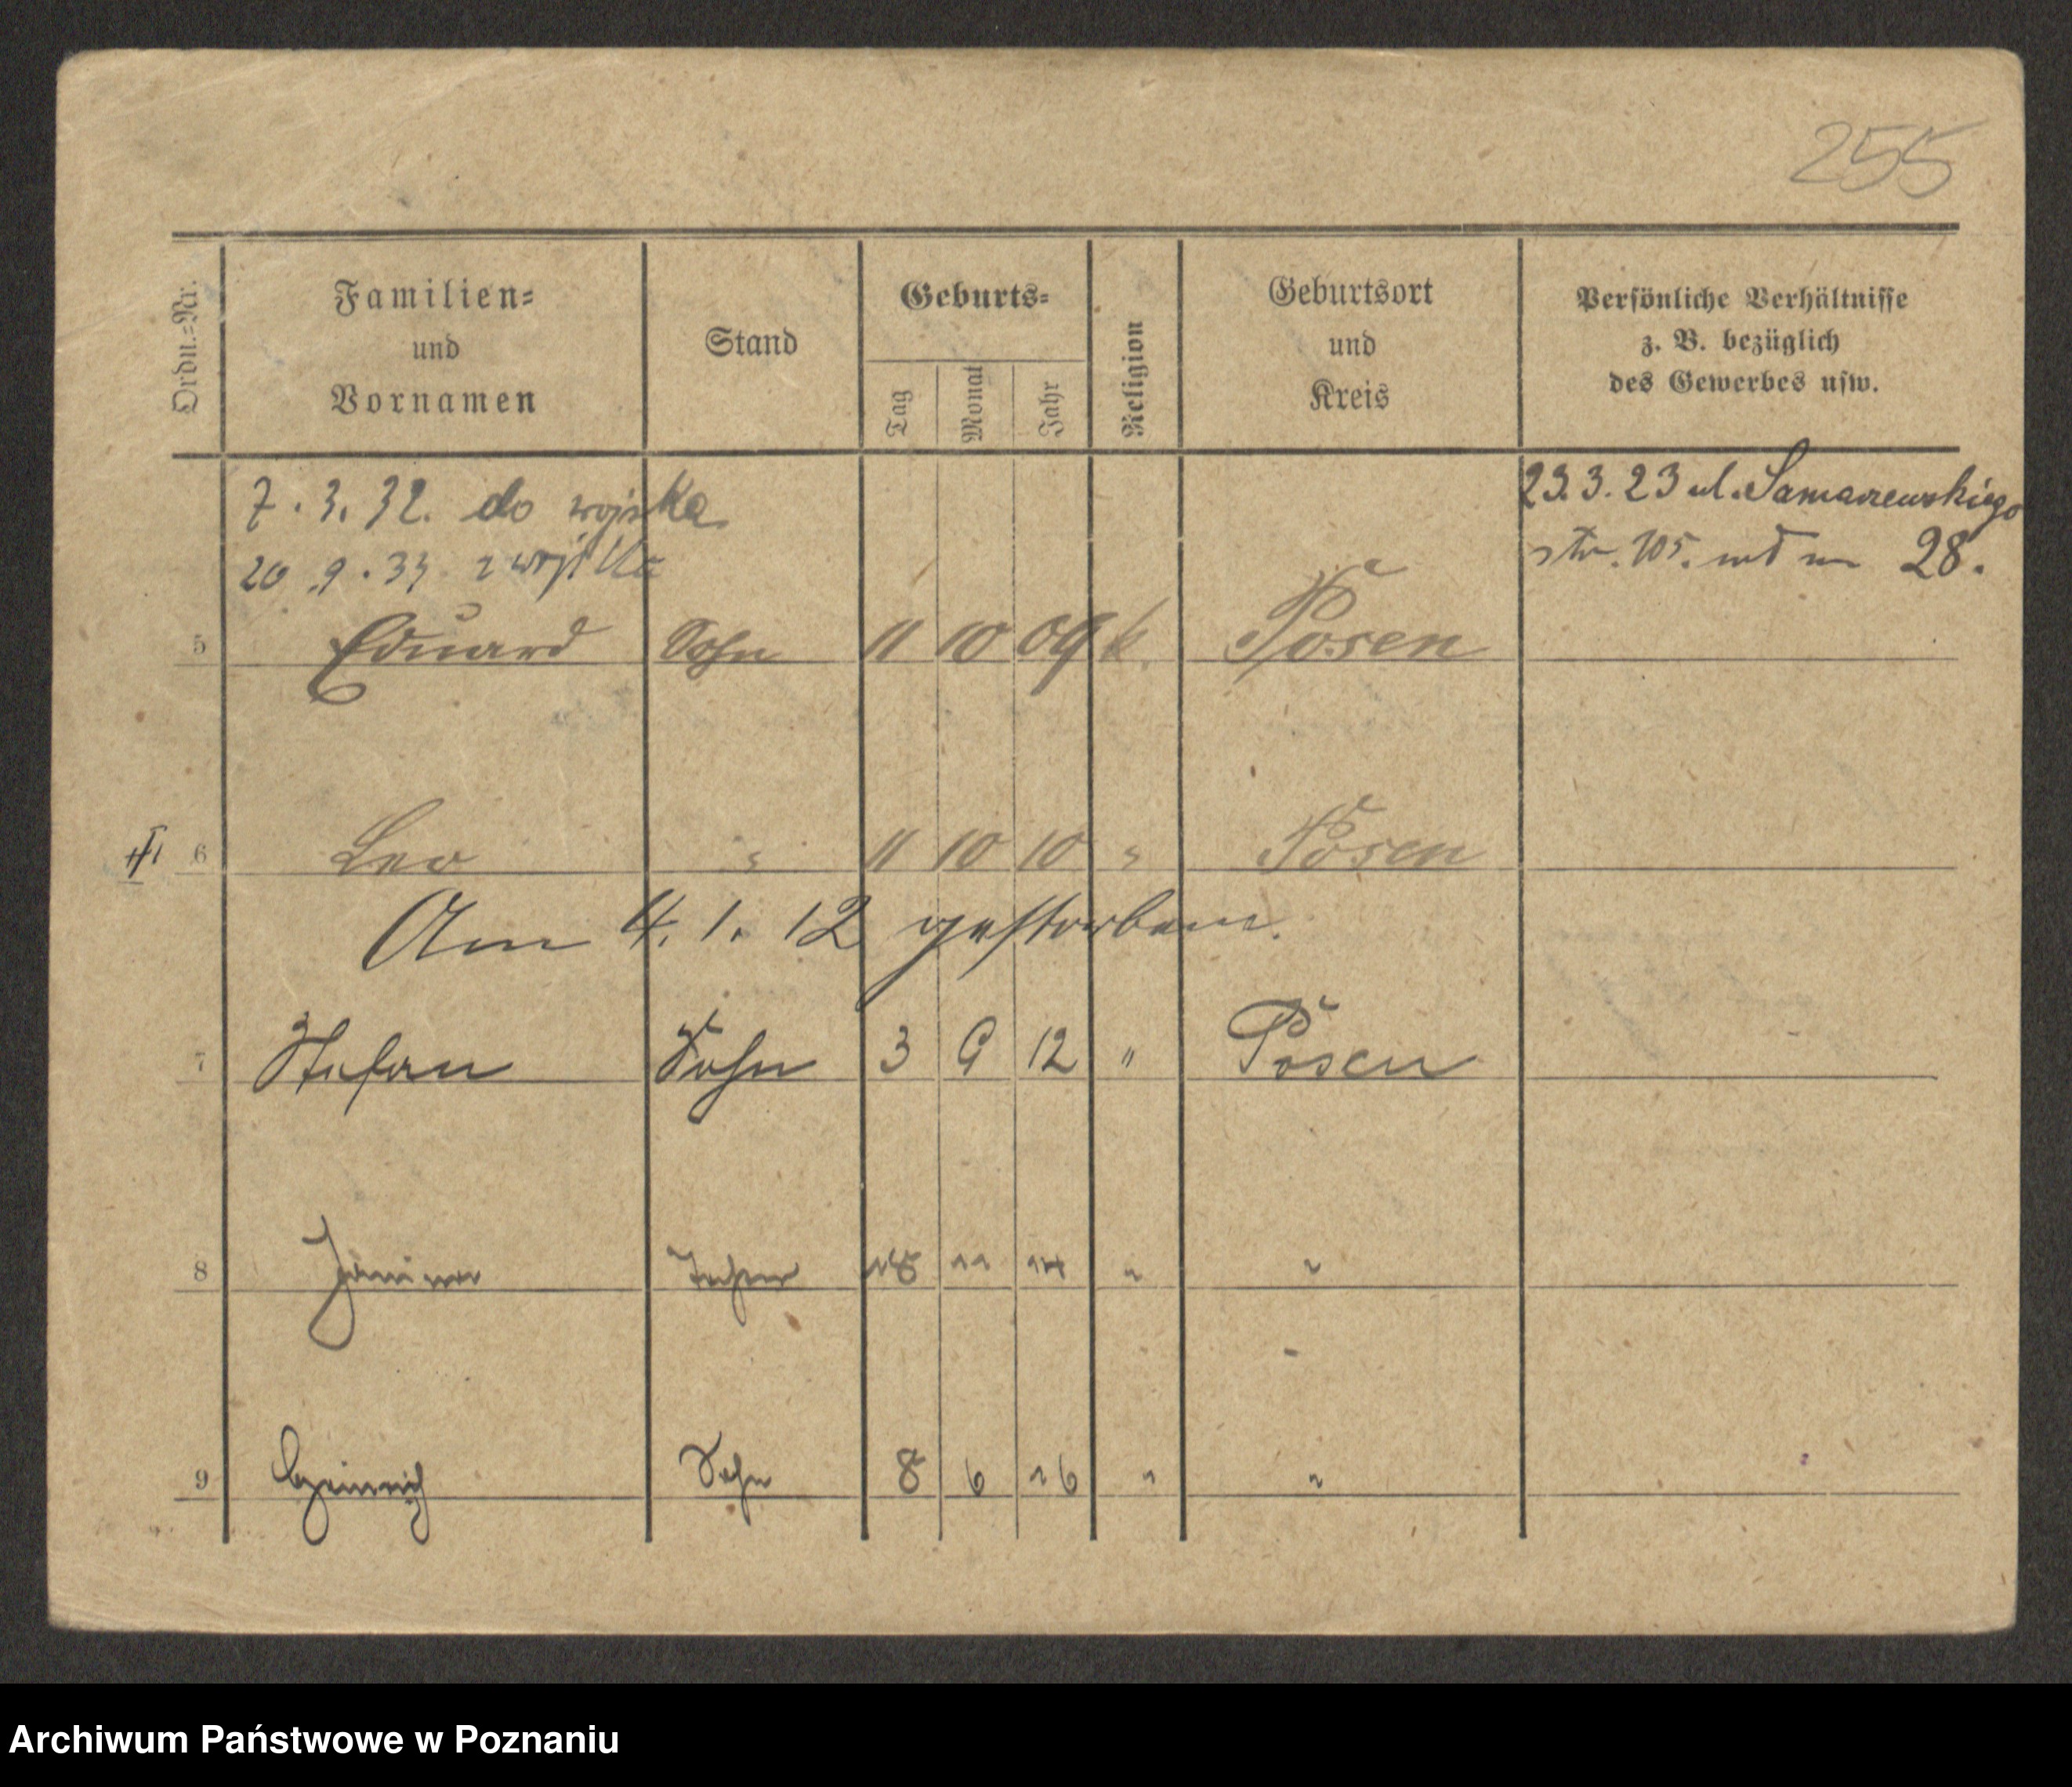 255
Ordn.=Nr.
Familien=
und
Vornamen
Stand
Geburts=
Tag
Monat
Jahr
Religion
Geburtsort
und
Kreis
Persönliche Verhältnisse
z. B. bezüglich
des Gewerbes usw.
7.3.32. do wojska
20.9.33. z wojska
23.3.23 ul. Samarzewskiego
str. 105. 28.
5 Eduard Sohn 11 10 09 k. Posen
6 Leo " 11 10 10 " Posen
Am 4.1.12 gestorben.
7 Stefan Sohn 3 9 12 " Posen
8 Janina Tochter 18 11 14 " "
9 Heinrich Sohn 8 6 16 " "
Archiwum Państwowe w Poznaniu